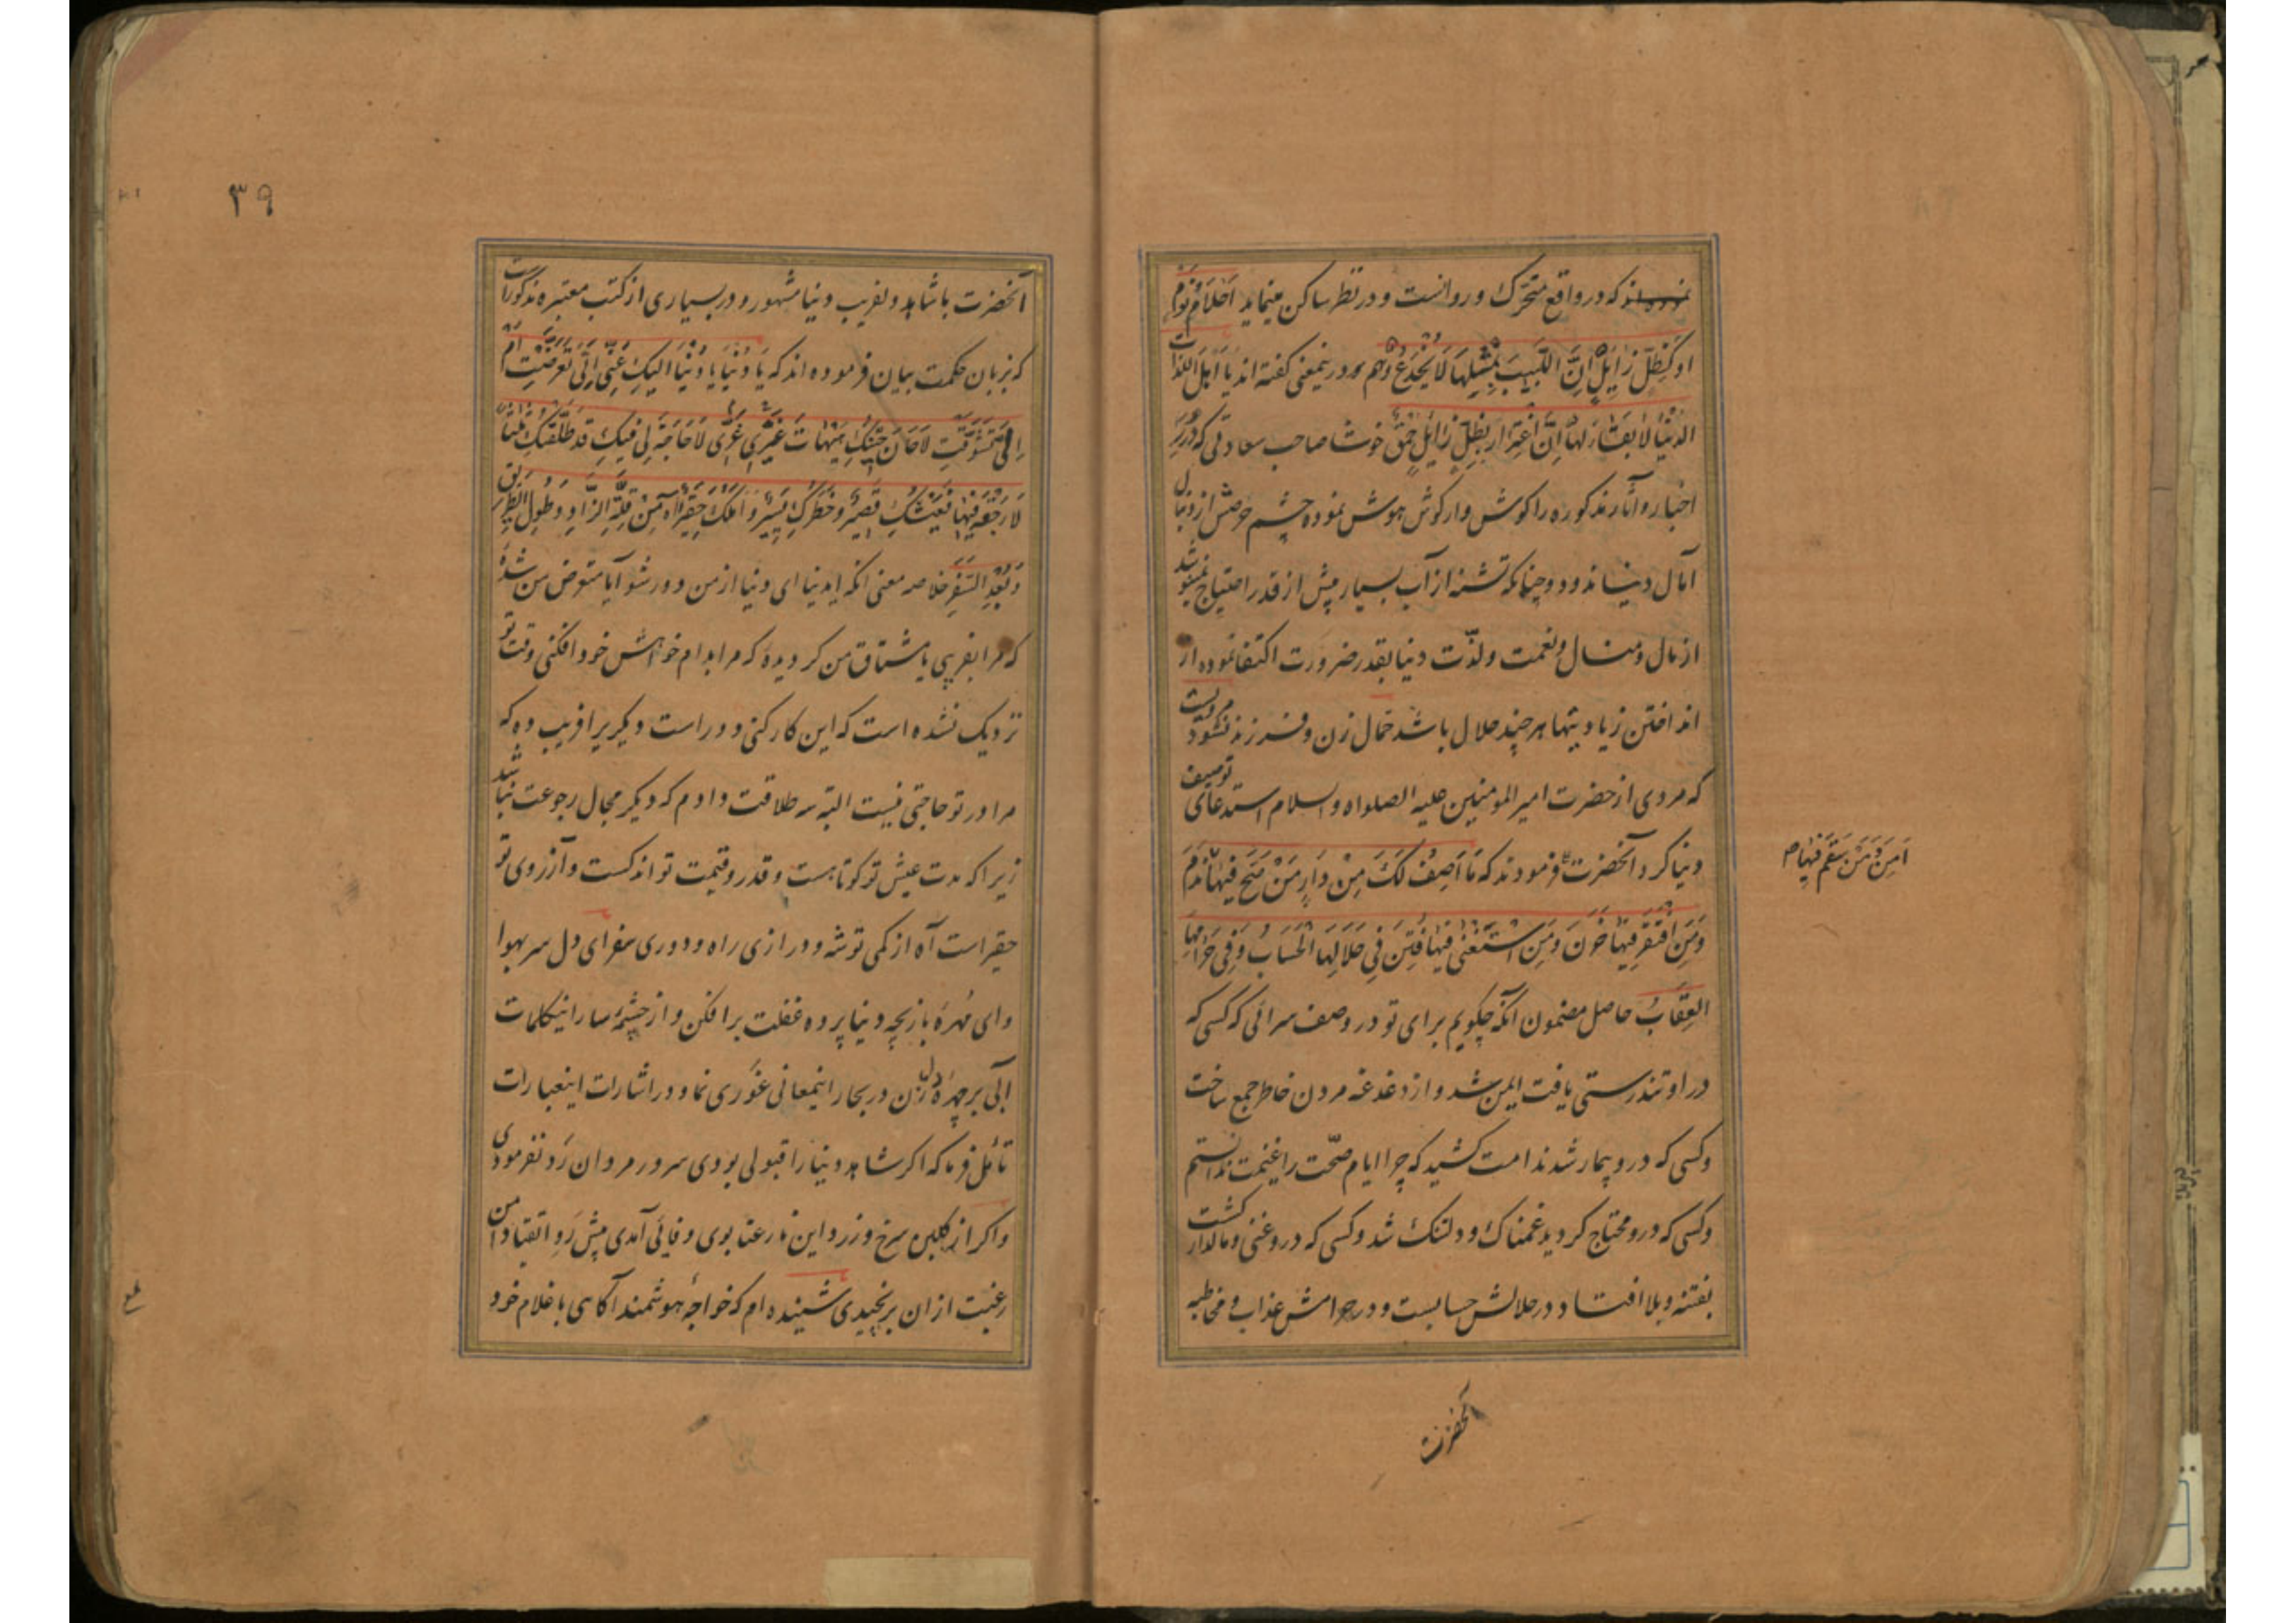 که در واقع متحرّک و روانست و در نظر ساکن مینماید اَحْلَامُ نَوْمٍ
اَوْ کَظِلٍّ زَایِلٍ اِنَّ اللَّبِیبَ بِمِثْلِهَا لَا یُخْدَعُ و هم در ینمعنی گفته اند یَا اَهْلَ اللَذَّاتِ
الدُنْیَا لَا بَقَاءَ لَهَا اِنَّ اغْتِرَارً بِظِلٍّ زَایِلٍ حُمْقٌ خوشا صاحب سعادتی که دُرَرِ
اخبار و آثار مذکوره را گوش وار گوش هوش نموده چشم حرصش از دنبال
آمال دنیا ندود و چنانکه تشنه از آب بسیار پیش از قدر احتیاج نمینوشد
از مال و منال و نعمت و لذّت دنیا بقدر ضرورت اکتفا نموده از
انداختن زیادیتها هر چند حلال باشد حمّال زن و فرزند نشود مرویست
که مردی از حضرت امیر المومنین علیه الصلواه والسلام استدعای توصیف
دنیا کرد آنحضرت فرمودند که مَا اَصِفُ لَکَ مِنْ دَارٍ مَنْ صَحَّ فِیهَا نَدِمَ
اَمِنَ وَ مَنْ سَقِمَ فِیهَا صح
وَ مَنِ افْتَقَرَ فِیهَا حَزِنَ وَ مَنِ اسْتَغْنَی فِیهَا فُتِنَ فِی حَلَالِهَا الْحِسَابُ وَ فِی حَرَامِهَا
العِقَابُ حاصل مضمون آنکه چگویم برای تو در وصف سرائی که کسی که
در او تندرستی یافت ایمن شد و از دغدغه مردن خاطر جمع ساخت
و کسی که درو بیمار شد ندامت کشید که چرا ایام صحّت را غنیمت ندانستم
و کسی که درو محتاج گردید غمناک و دلتنک شد و کسی که درو غنی و مالدار گشت
بفتنه و بلا افتاد و در حلالش حسابست و در حرامش عذاب و مخاطبه
آنحضرت
۳۹
آنحضرت با شاهد دلفریب دنیا مشهور و در بسیاری از کتب معتبره مذکورات
که بزبان حکمت بیان فرموده اند که یَا دُنْیَا یَا دُنْیَا اِلَیْکِ عَنِّی اَبِی تَعَرَّضْتِ اَمْ
اِلَیَّ تَشَوَّقْتِ لَا حَانَ حِینُکِ هَیْهَاتَ غُرِّی غَیْرِی لَا حَاجَةَ لِی فِیکِ قَد طَلَّقْتُکِ ثَلَاثًا
لَا رَجْعَةَ فِیهَا فَعَیْشُکِ قَصِیرٌ وَ خَطَرُکِ یَسِیرٌ وَ اَمَلُکِ حَقِیرٌ آهِ مِنْ قِلَّةِ الزَّادِ وَ طُولِ الطَّرِیقِ
وَ بُعْدِ السَّفَرِ خلاصه معنی آنکه ایدنیا ای دنیا از من دور شو آیا متعرض من شدهٔ
که مرا بفریبی یا مشتاق من گردیدهٔ که مرا بدام خواهش خود افکنی وقت تو
نزدیک نشده است که این کار کنی دور است دیگریرا فریب ده که
مرا در تو حاجتی نیست البته سه طلاقت دادم که دیگر مجال رجوعت نباشد
زیرا که مدت عیش تو کوتاهست و قدر و قیمت تو اندکست و آرزوی تو
حقیر است آه از کمی توشه و درازی راه و دوری سفر ای دل سر بهوا
وای مُهرهٔ بازیچه دنیا پرده غفلت بر افکن و از چشمهٔ سار اینکلمات
آبی بر چهرهٔ دل زن در بحار اینمعانی غَوری نما و در اشارات اینعبارات
تأمّل فرما که اگر شاهد دنیا را قبولی بودی سرور مردان رَد نفرمودی
و اگر از گلبن سرخ و زرد این نارعنا بوی وفائی آمدی پیش رَوِ اتقیا دامن
رغبت از ان برنچیدی شنیده ام که خواجهٔ هوشمند آکاهی با غلام خود